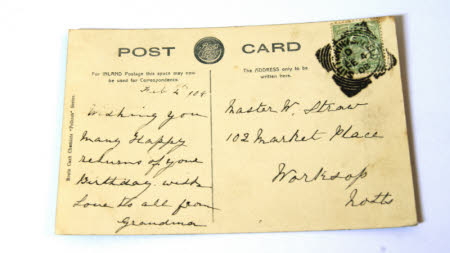 POST CARD
For INLAND Postage this space may now
be used for Correspondence.
The ADDRESS only to be
written here.
Wishing you
Many Happy
returns of your
Birthday with
Love to all from
Grandma
Master W. Straw
102 Market Place
Worksop
Notts